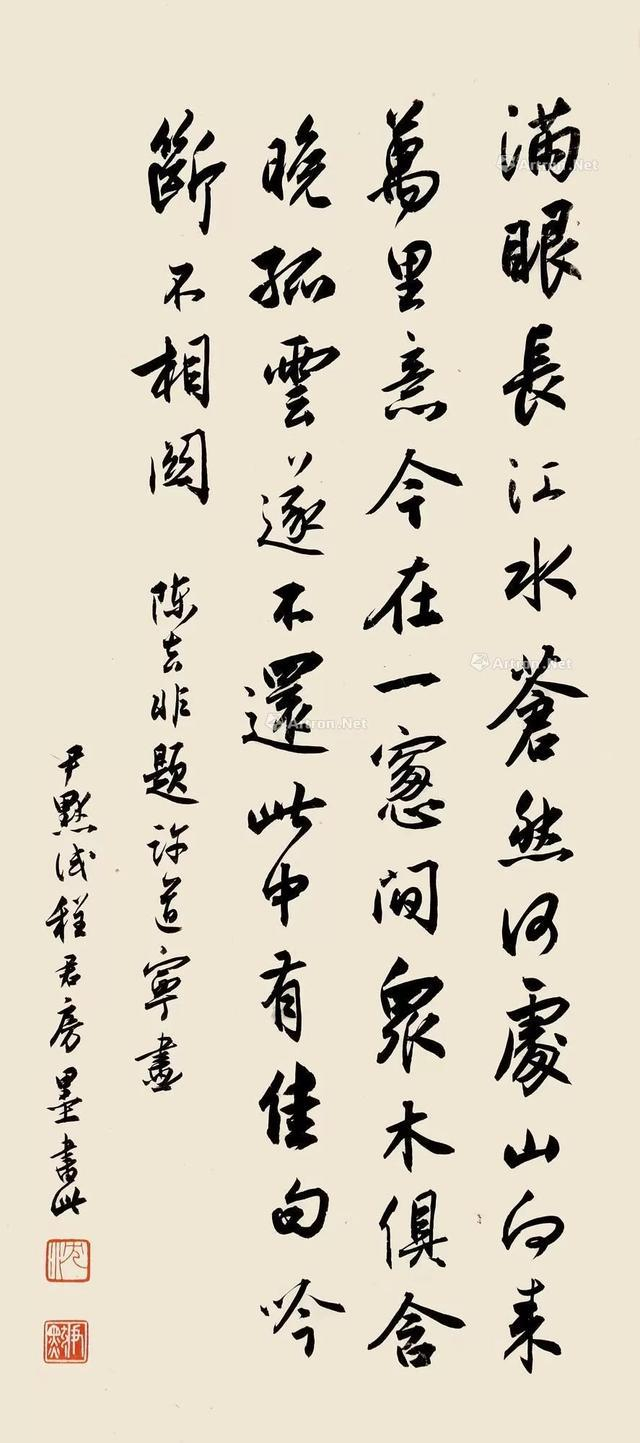 滿眼長江水蒼然何處山向來
萬里意今在一窻间眾木俱含
晚孤雲遂不還此中有佳句吟
斷不相関
陳去非題許道寧畫
尹默试程君房墨書此
沈
尹默
Artron.Net
Artron.Net
Artron.Net